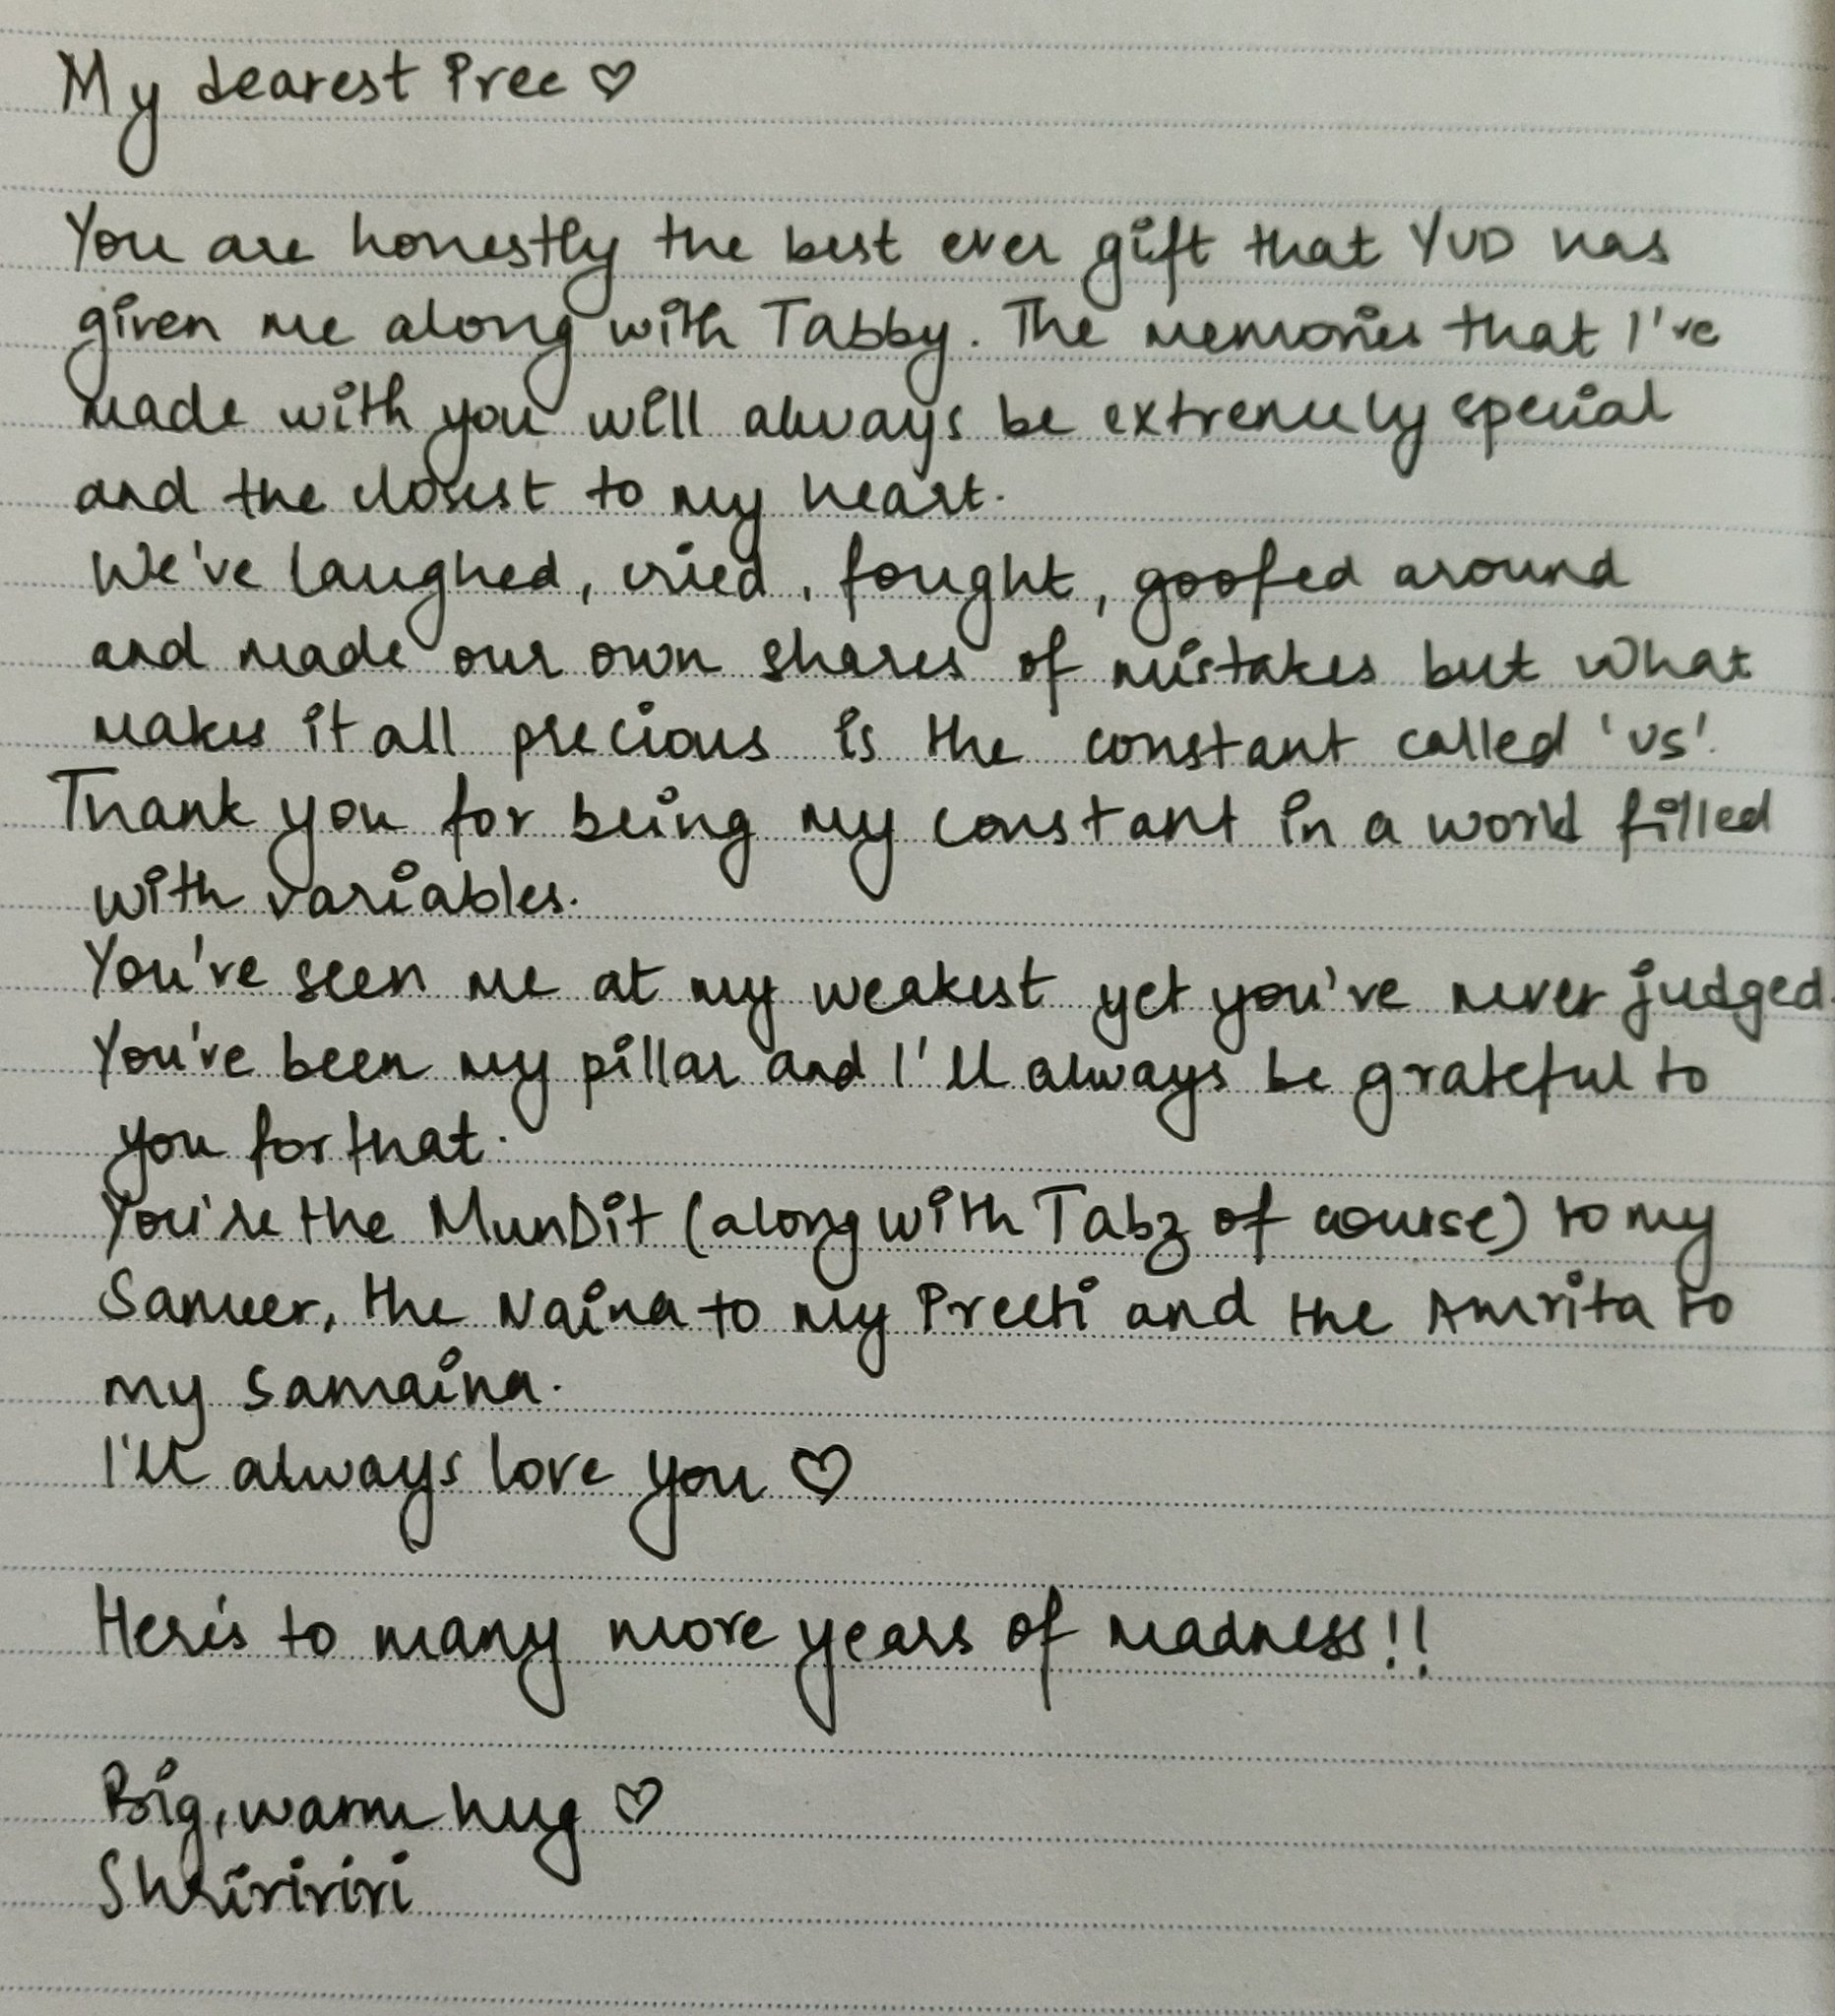 My dearest Pree ♡
You are honestly the best ever gift that YUD has
given me along with Tabby. The memories that I've
made with you will always be extremely special
and the closest to my heart.
We've laughed, cried, fought, goofed around
and made our own shares of mistakes but what
makes it all precious is the constant called 'us'.
Thank you for being my constant in a world filled
with variables.
You've seen me at my weakest yet you've never judged.
You've been my pillar and I'll always be grateful to
you for that.
You're the MunDit (along with Tabz of course) to my
Sameer, the Naina to my Preeti and the Amrita to
my Samaina.
I'll always love you ♡
Here's to many more years of madness!!
Big, warm hug ♡
Shriririri